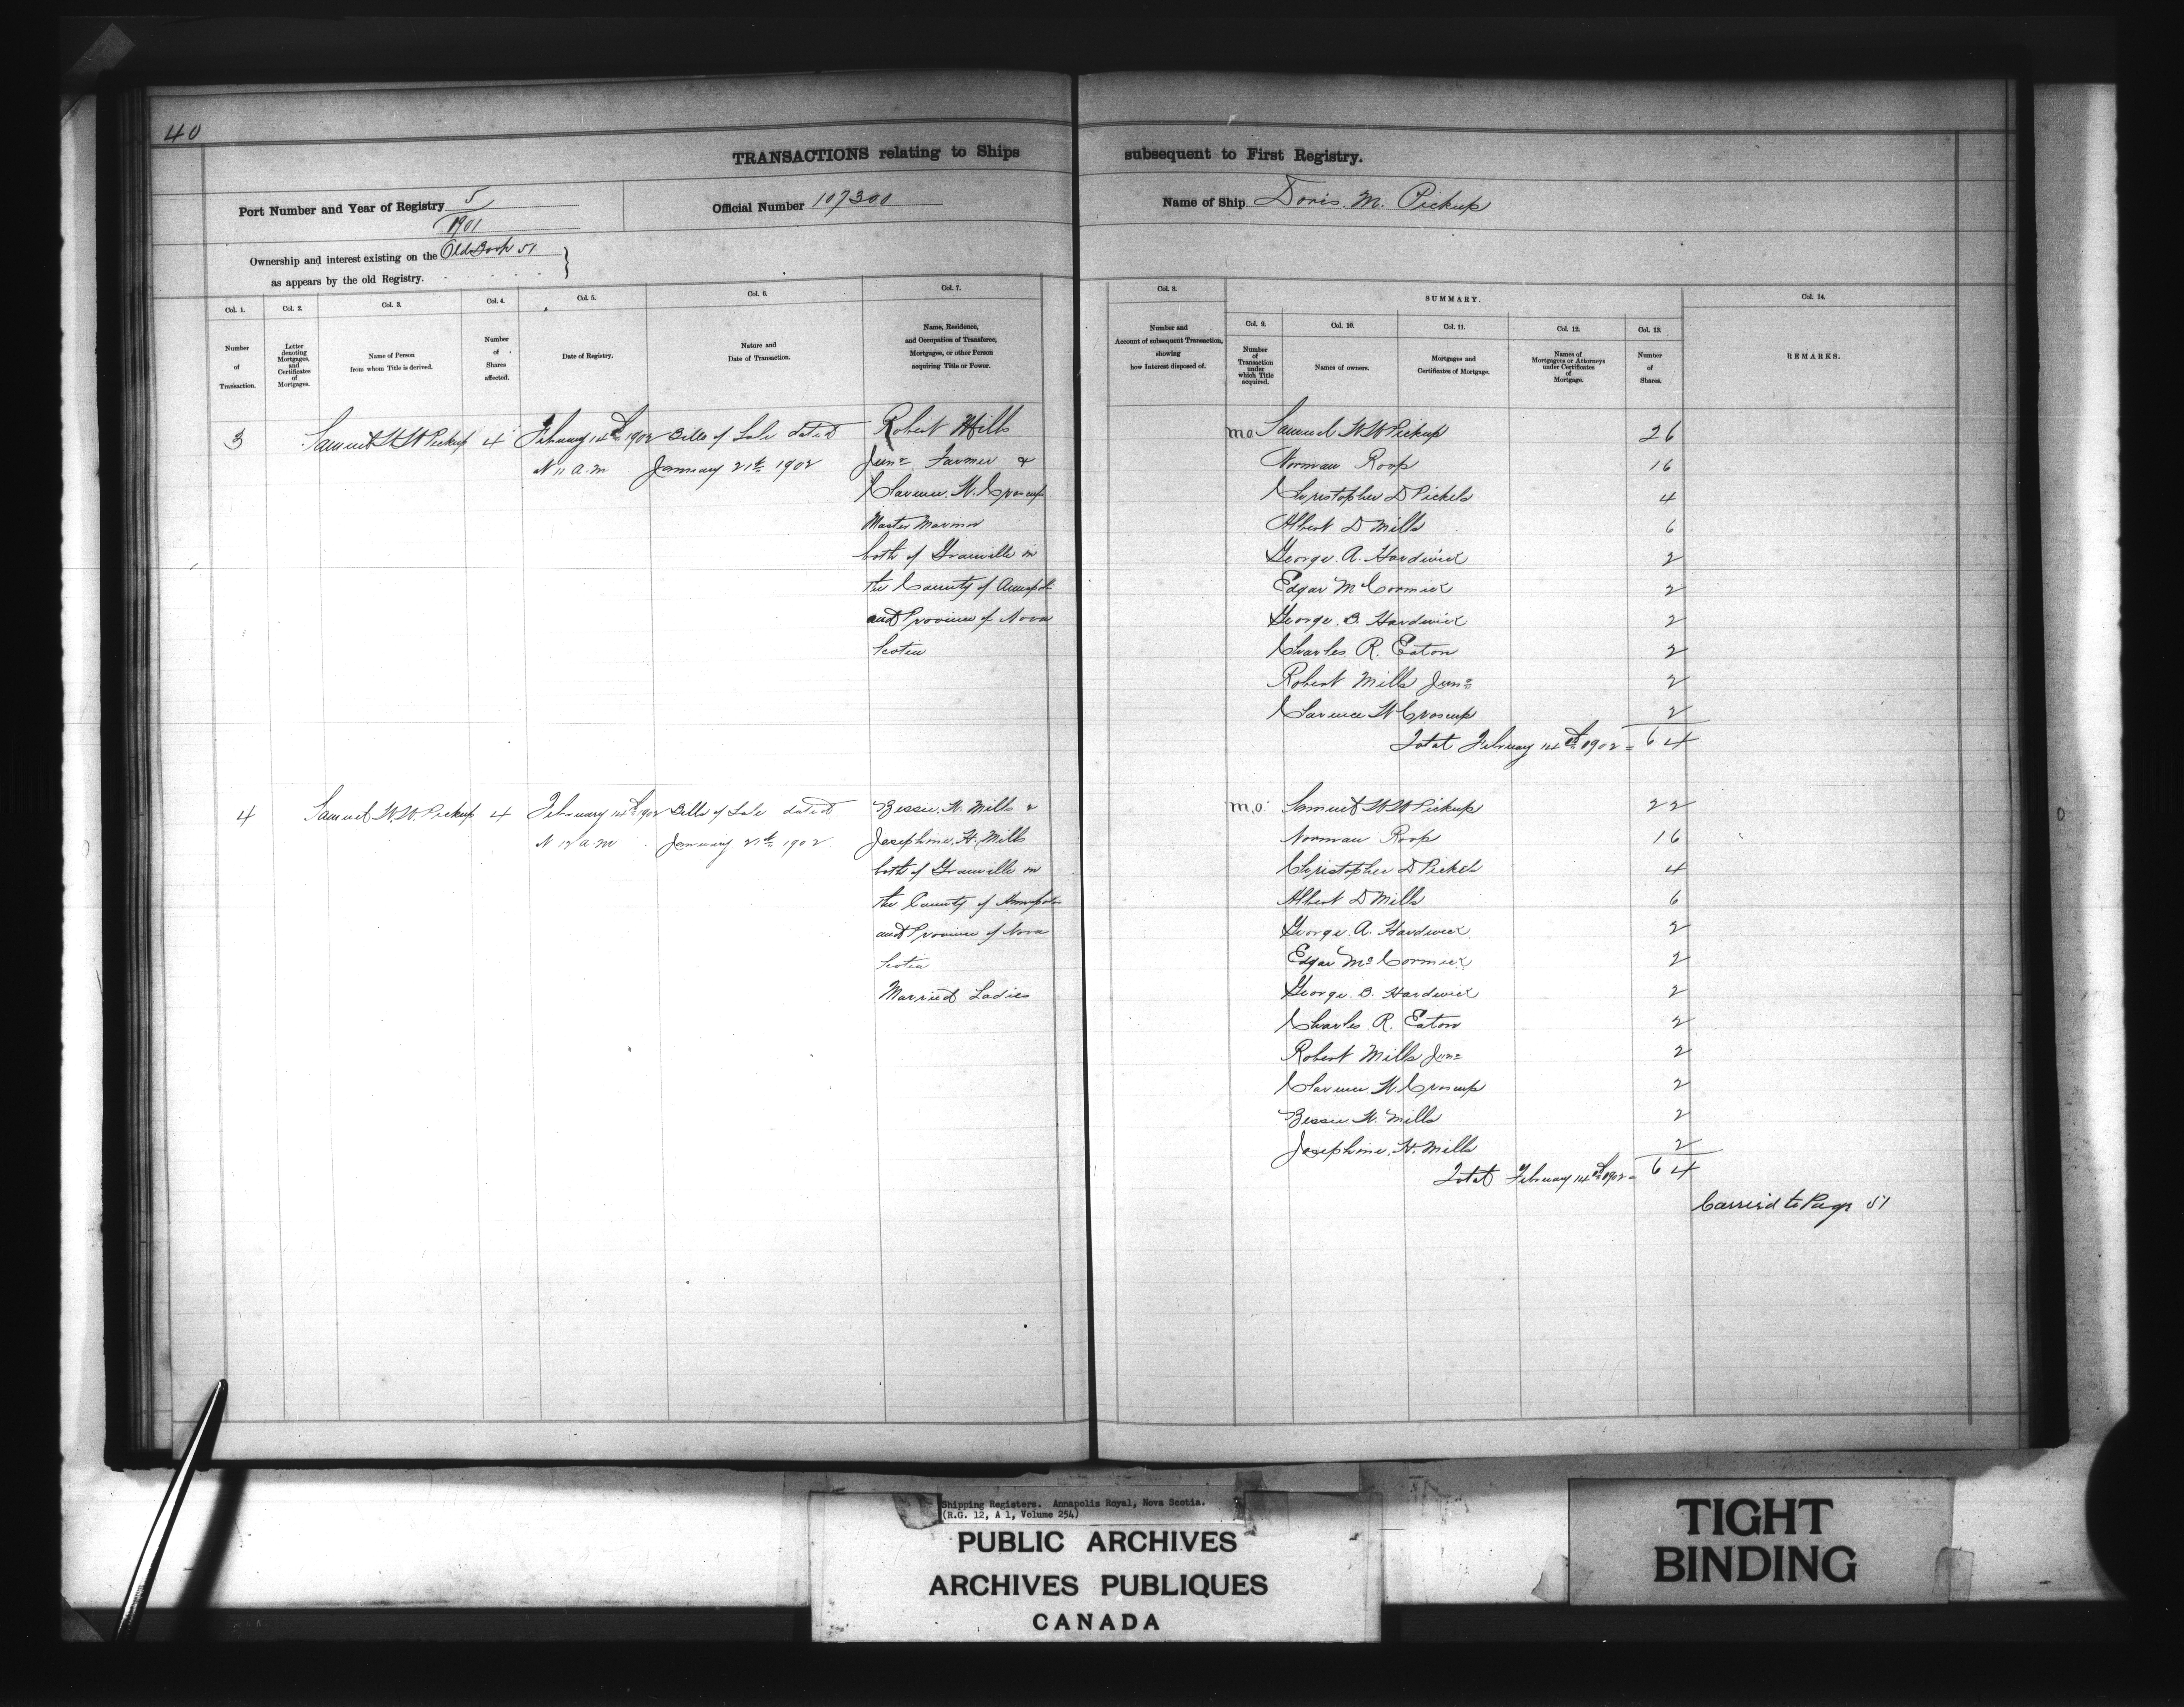 40
TRANSACTIONS relating to Ships subsequent to First Registry.
Port Number and Year of Registry 5/1901
Official Number 107300
Name of Ship Doris M. Pickup
Ownership and interest existing on the Old Book 51
as appears by the old Registry.
Col. 1. Col. 2. Col. 3. Col. 4. Col. 5. Col. 6. Col. 7. Col. 8. SUMMARY. Col. 14.
Col. 9. Col. 10. Col. 11. Col. 12. Col. 13.
Number of Transaction.
Letter denoting Mortgages, and Certificates of Mortgages.
Name of Person from whom Title is derived.
Number of Shares affected.
Date of Registry.
Nature and Date of Transaction.
Name, Residence, and Occupation of Transferee, Mortgagee, or other Person acquiring Title or Power.
Number and Account of subsequent Transaction, showing how Interest disposed of.
Number of Transaction under which Title acquired.
Names of owners.
Mortgages and Certificates of Mortgage.
Names of Mortgagees or Attorneys under Certificates of Mortgage.
Number of Shares.
REMARKS.
3 Samuel W W Pickup 4 February 14th 1902 Bills of Sale dated Robert Mills
11 a.m January 21th 1902 Junr Farmer &
Clarence W. Croscup
Master Mariner
both of Granville in
the County of Annapolis
and Province of Nova
Scotia
m.o. Samuel W W Pickup 26
Norman Roop 16
Christopher D Pickels 4
Albert D Mills 6
George A. Hardwick 2
Edgar McCormick 2
George B Hardwick 2
Charles R. Eaton 2
Robert Mills Junr 2
Clarence W Croscup 2
Total February 14th 1902 = 64
4 Samuel W.W. Pickup 4 February 14th 1902 Bills of Sale dated Bessie W. Mills &
12 a.m January 21th 1902 Josephine H. Mills
both of Granville in
the County of Annapolis
and Province of Nova
Scotia
Married Ladies
m.o. Samuel W W Pickup 22
Norman Roop 16
Christopher D Pickels 4
Albert D Mills 6
George A. Hardwick 2
Edgar McCormick 2
George B. Hardwick 2
Charles R. Eaton 2
Robert Mills Junr 2
Clarence W. Croscup 2
Bessie W. Mills 2
Josephine H. Mills 2
Total February 14th 1902 = 64
Carried to Page 51
Shipping Registers. Annapolis Royal, Nova Scotia.
(R.G. 12, A 1, Volume 254)
PUBLIC ARCHIVES
ARCHIVES PUBLIQUES
CANADA
TIGHT
BINDING